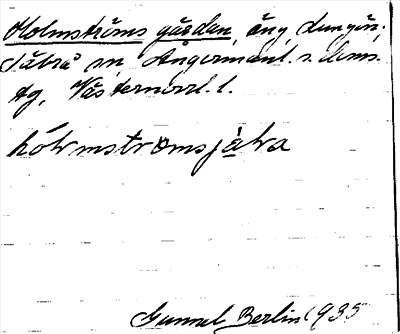 Holmströms gården, äng, Lungön,
Säbrå sn, Ångermanl. s. doms.
tg, Västernorrl. l.
hólmstromsjạ̀ḷa
Gunnel Berlin 1935